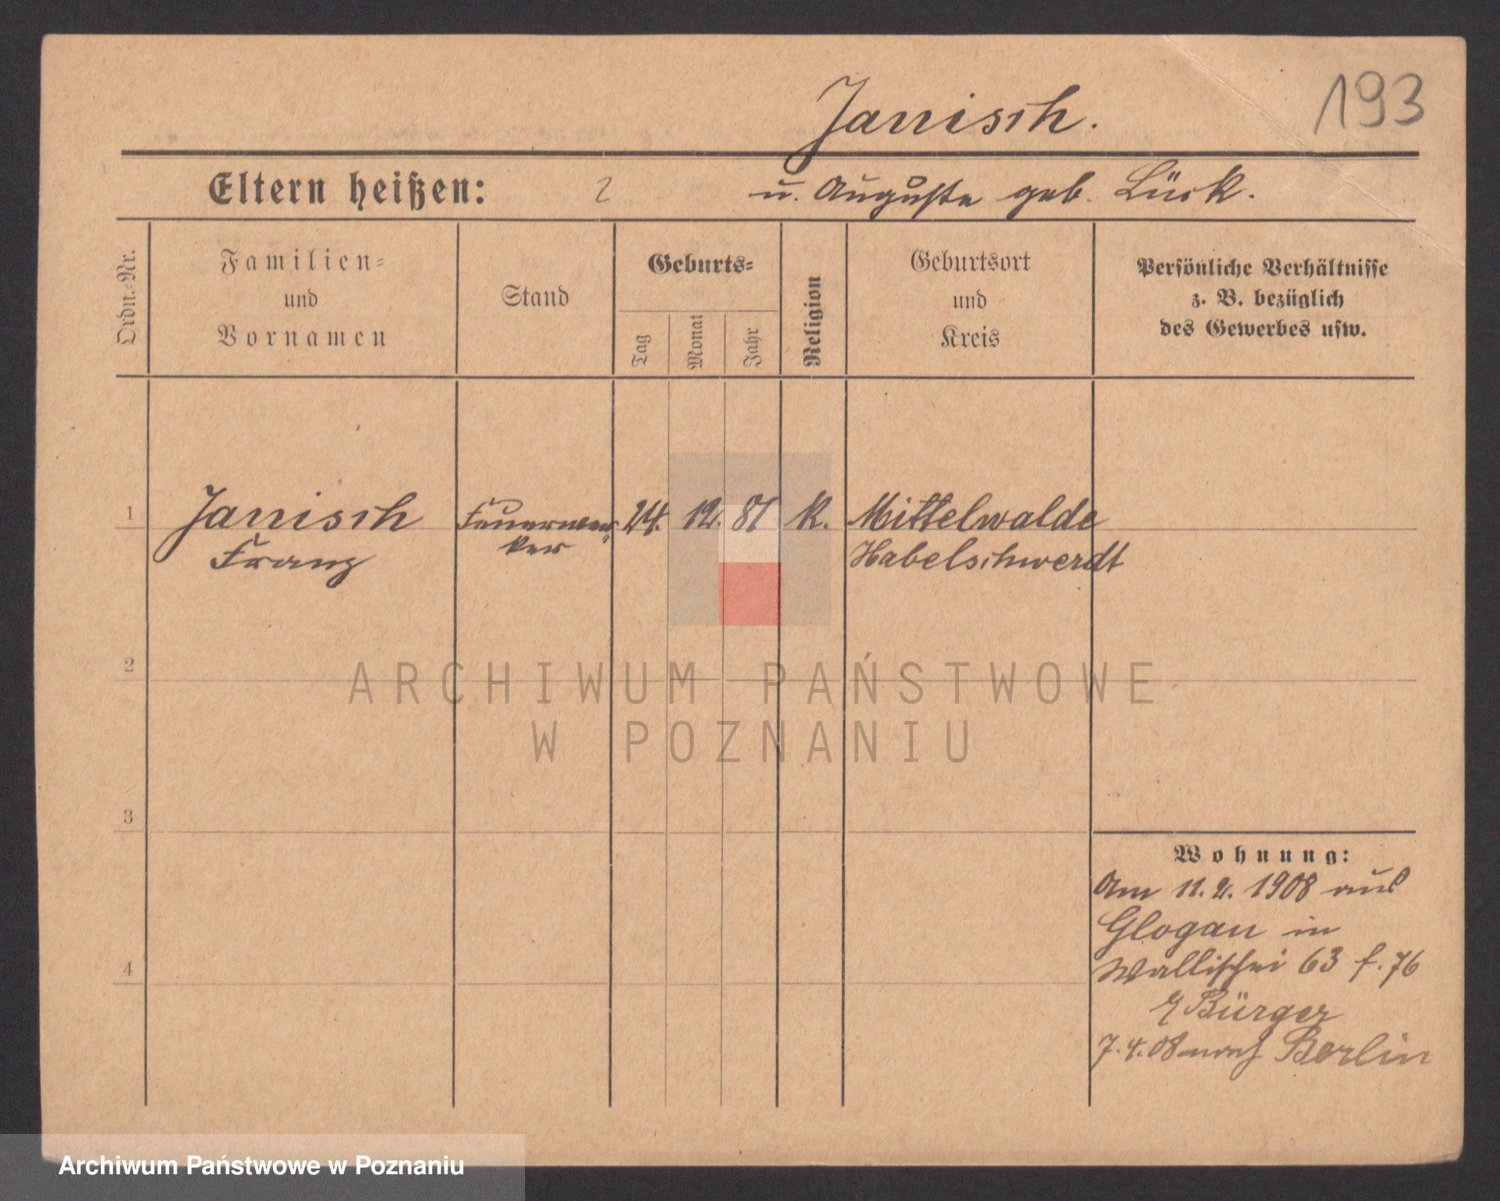 Janisch.
193
Eltern heißen:
2
u. Auguste geb. Lück.
Ordn.-Nr.
Familien- und Vornamen
Stand
Geburts-
Tag
Monat
Jahr
Religion
Geburtsort und Kreis
Persönliche Verhältnisse
z. B. bezüglich
des Gewerbes usw.
1
Janisch
Franz
Feuerwer-
ker
24.
12.
81
K.
Mittelwalde
Habelschwerdt
2
ARCHIWUM PAŃSTWOWE
W POZNANIU
3
4
Wohnung:
Am 11.2.1908 aus
Glogau in
Wallischei 63 f. 76
Bürger
7.4.08 nach Berlin
Archiwum Państwowe w Poznaniu